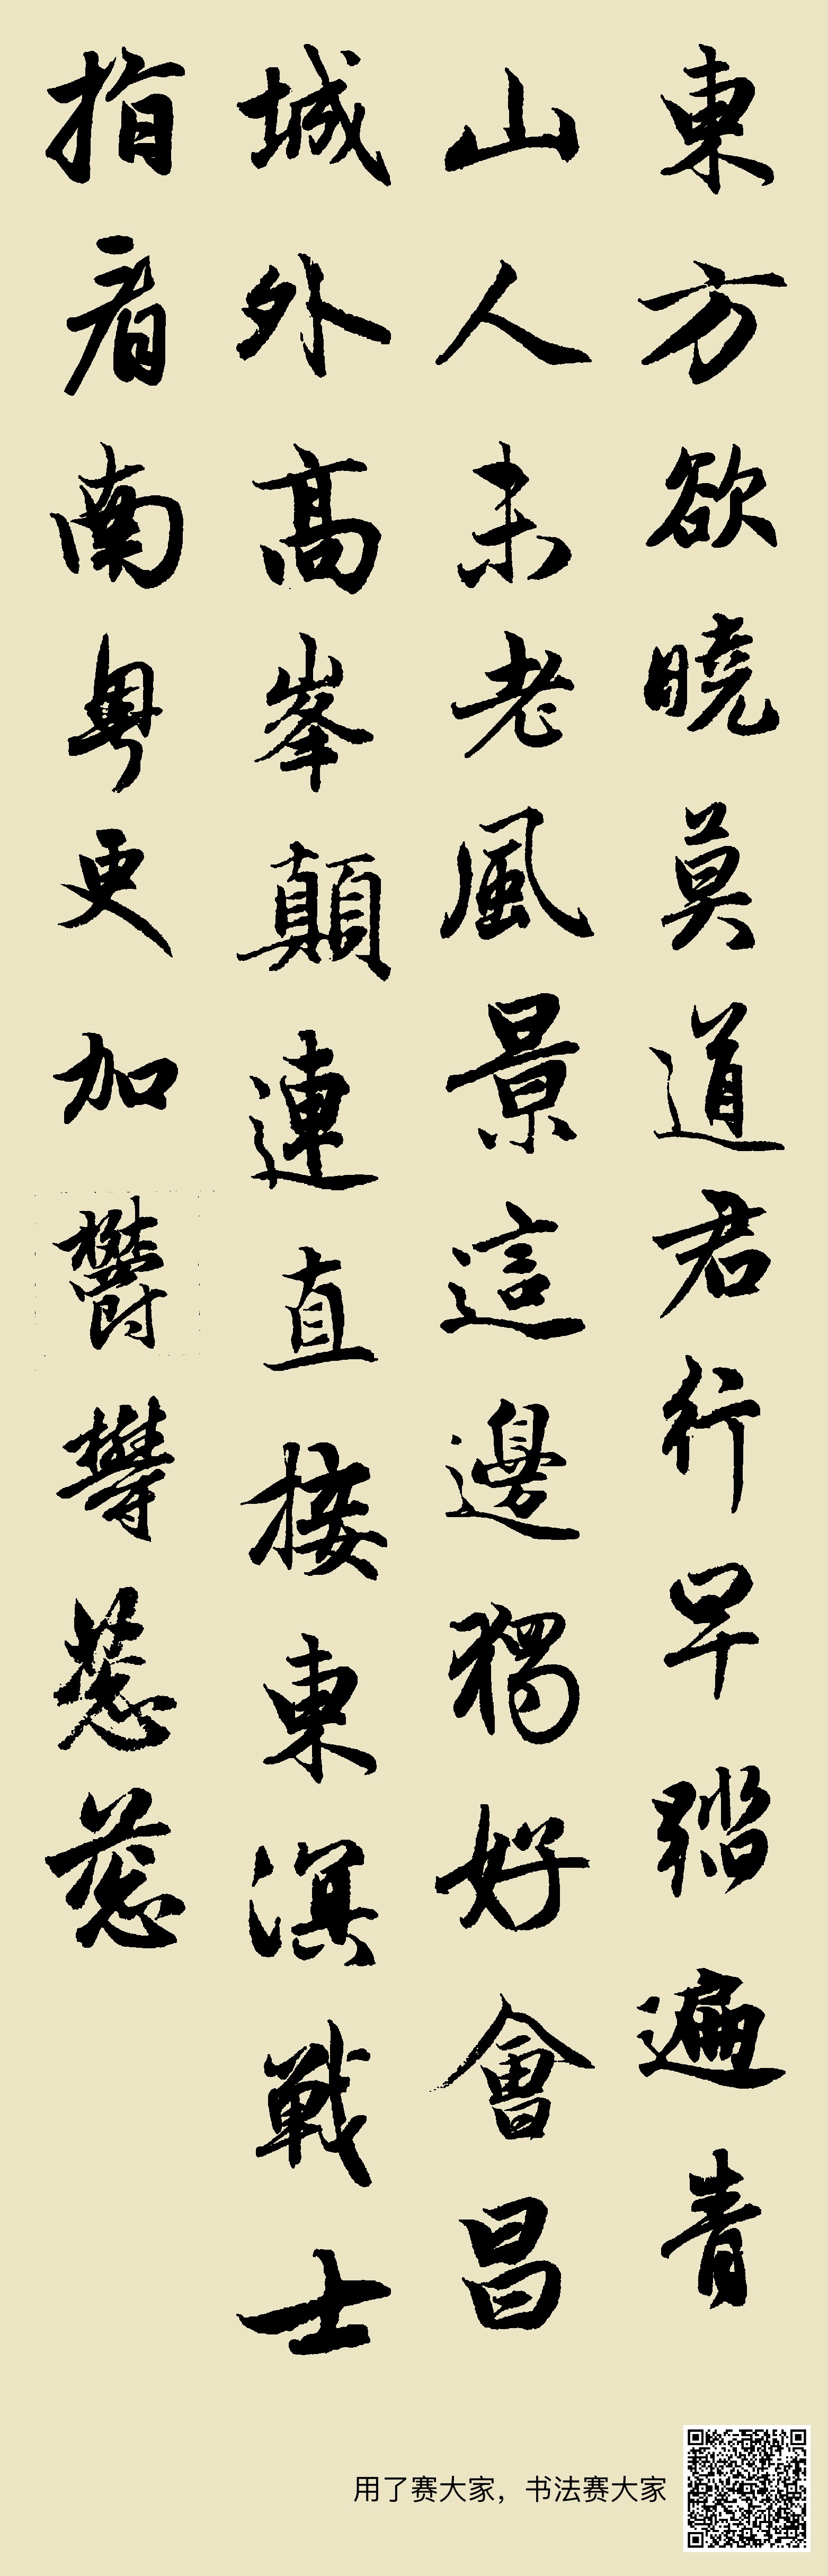 東方欲曉莫道君行早踏遍青
山人未老風景這邊獨好會昌
城外高峯顛連直接東溟戰士
指看南粵更加鬱鬱蔥蔥
用了赛大家，书法赛大家